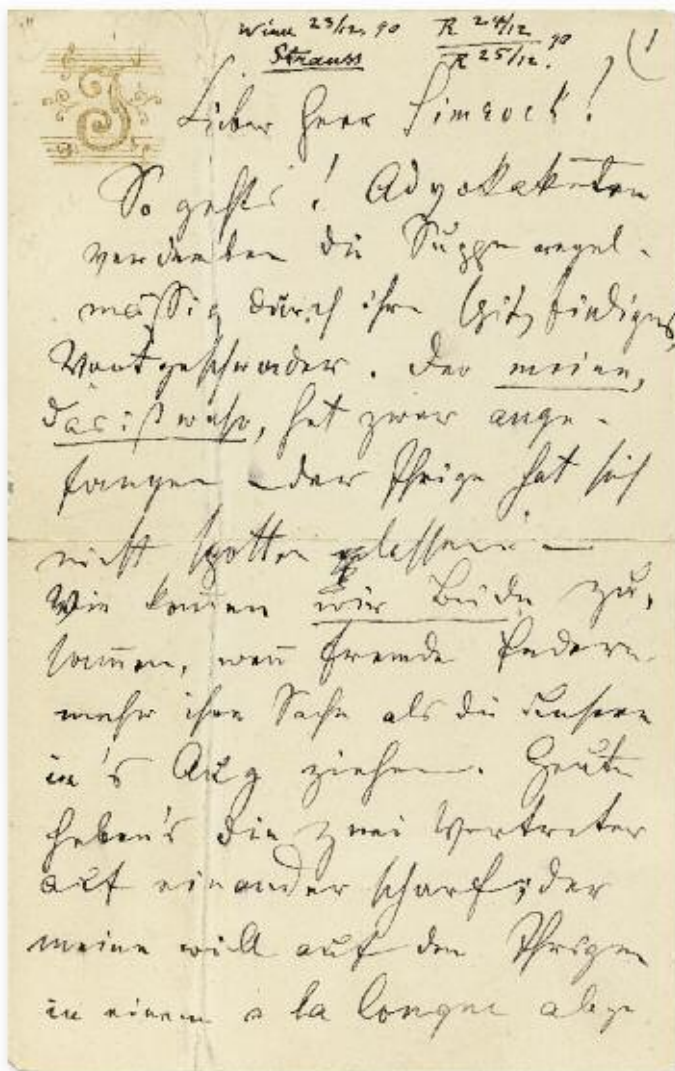 Wien 23/12. 90 R 24/12 90
Strauss R 25/12.
1
Lieber Herr Simrock!
So geht's! Advokakaten
verderben die Suppe regel-
mässig durch ihre spitzfindigen
Wortgeschwader. Der meine,
das ist wahr, hat zwar ange-
fangen – der Ihrige hat sich
nicht spotten gelassen –
Wie kommen wir Beide zu-
sammen, wenn fremde Federn
mehr ihre Sache als die unsere
in's Aug ziehen. Heute
haben's die zwei Vertreter
auf einander scharf; der
meine will auf den Ihrigen
in einem à la longue abge